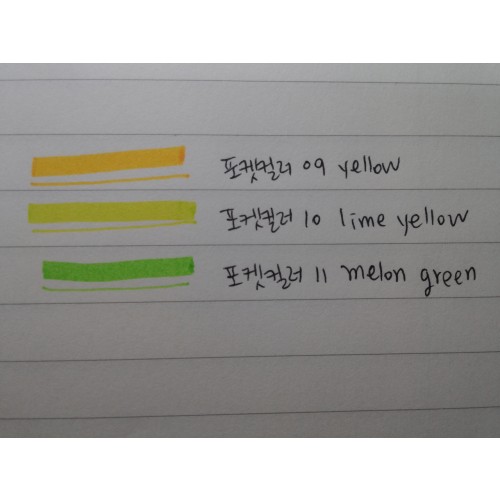 포켓컬러 09 yellow
포켓컬러 10 lime yellow
포켓컬러 11 melon green